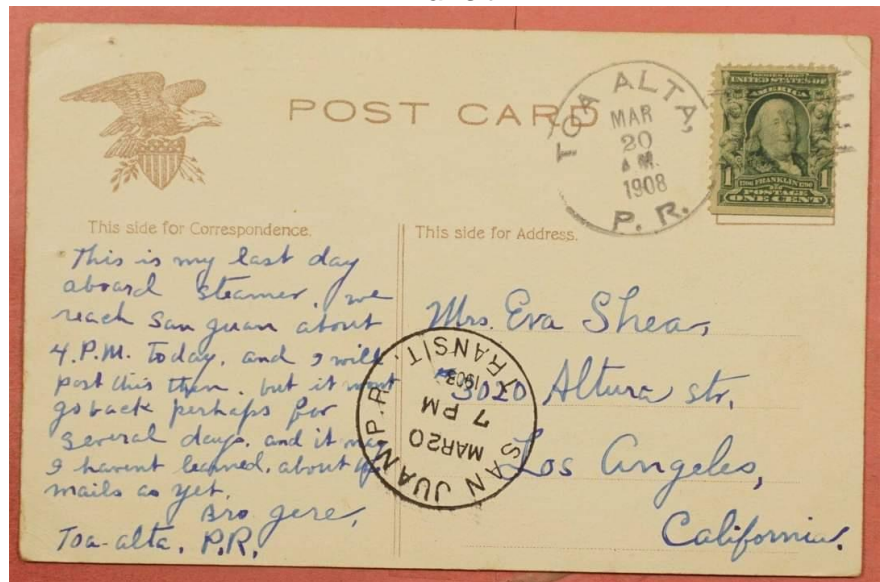 POST CARD
TOA ALTA,
MAR
20
A M.
1908
P. R.
SERIES 1902
UNITED STATES OF
AMERICA
1 FRANKLIN 1
POSTAGE
ONE CENT
This side for Correspondence.
This is my last day
aboard steamer, we
reach San Juan about
4.P.M. Today, and I will
post this then. but it wont
go back perhaps for
several days. and it may
I havent learned, about
mails as yet,
Bro Jere,
Toa-alta, P.R,
This side for Address.
Mrs. Eva Shea,
3020 Altura str,
Los Angeles,
California.
SAN JUAN P.R. TRANSIT.
MAR20
7 PM
1908